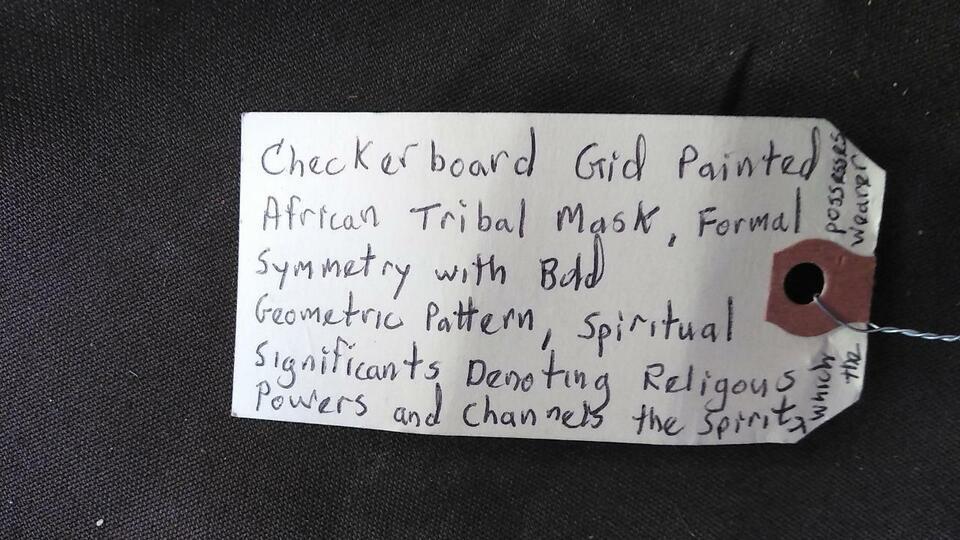 Checkerboard Grid Painted
African Tribal Mask, Formal
Symmetry with Bold
Geometric Pattern, Spiritual
Significants Denoting Religous
Powers and Channels the Spirits
which possesses
the wearer